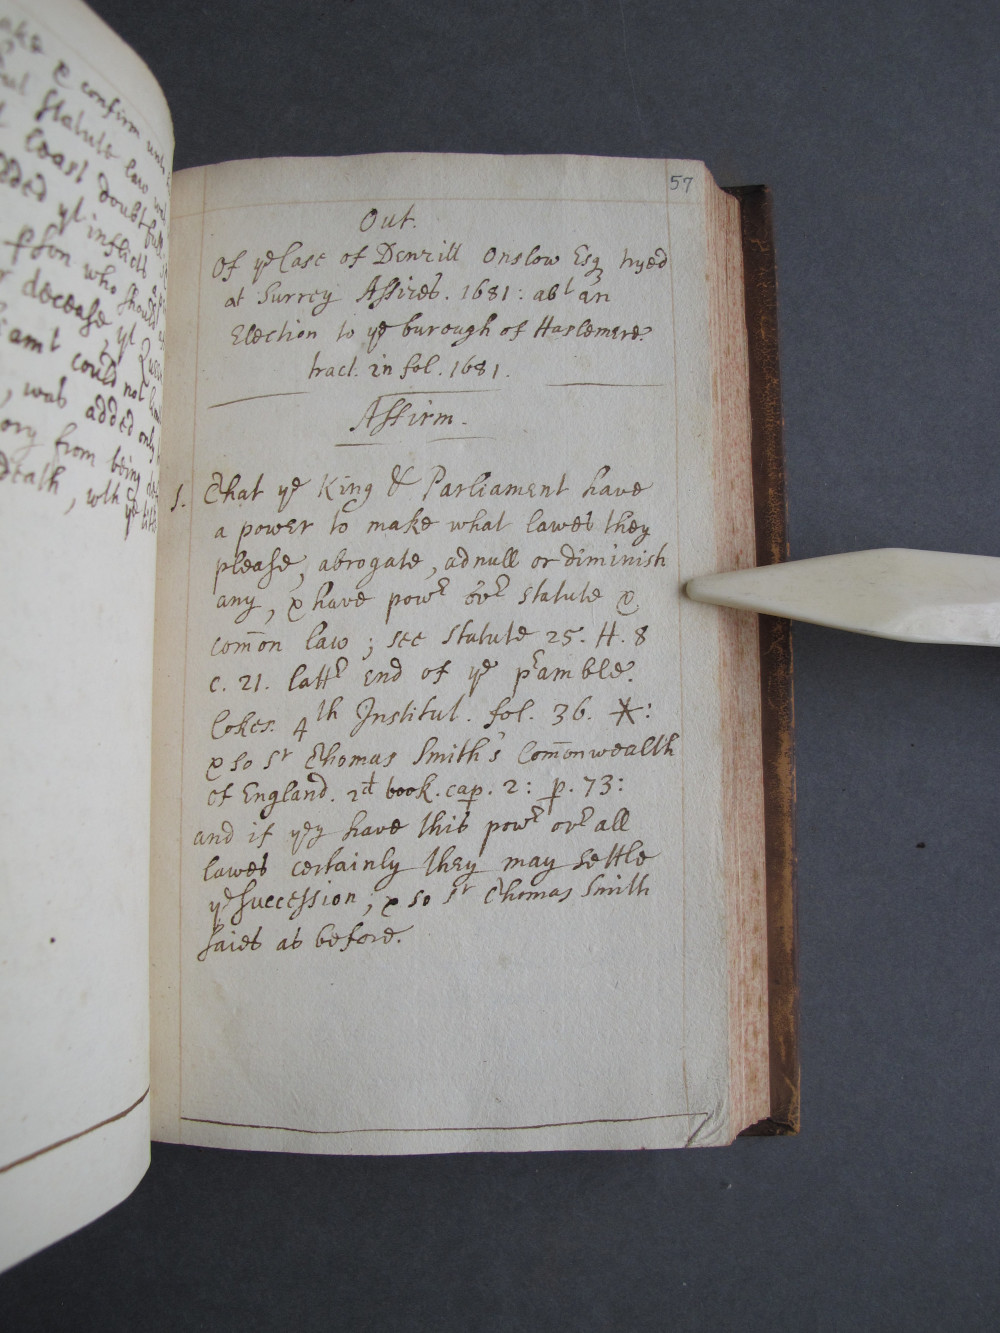 ake & confirm unto
ful statute law was
t Coast doubtfull
eded yt inflicts a
pson who should
r decease, yt Quee
amt could not limi
, was added only
ory from being
death, wch
ye title
57
Out.
Of ye Case of Denzill Onslow Esq tryed
at Surrey Assizes. 1681: abt an
Election to ye burough of Haslemere.
tract. in fol. 1681.
Affirm.
1. That ye King & Parliament have
a power to make what lawes they
please, abrogate, adnull or diminish
any, & have powr ovr statute &
comōn law; see statute 25. H. 8
c. 21. lattr end of ye pramble.
Cokes. 4th Institut. fol. 36. *:
& so Sr Thomas Smith's Comōnwealth
of England. 2d book. cap. 2: p. 73:
and if yey have this powr ovr all
lawes certainly they may settle
ye succession; & so Sr Thomas Smith
saies as before.